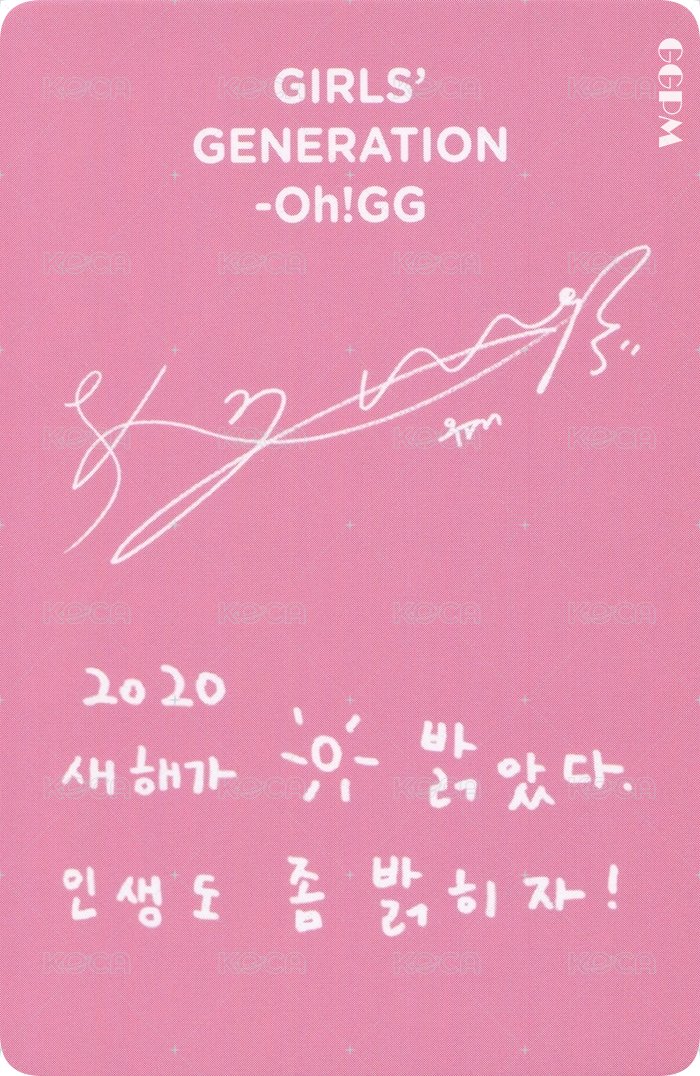 GIRLS'
GENERATION
-Oh!GG
GGPM
2020
새해가 밝았다.
인생도 좀 밝히자!
KOCA